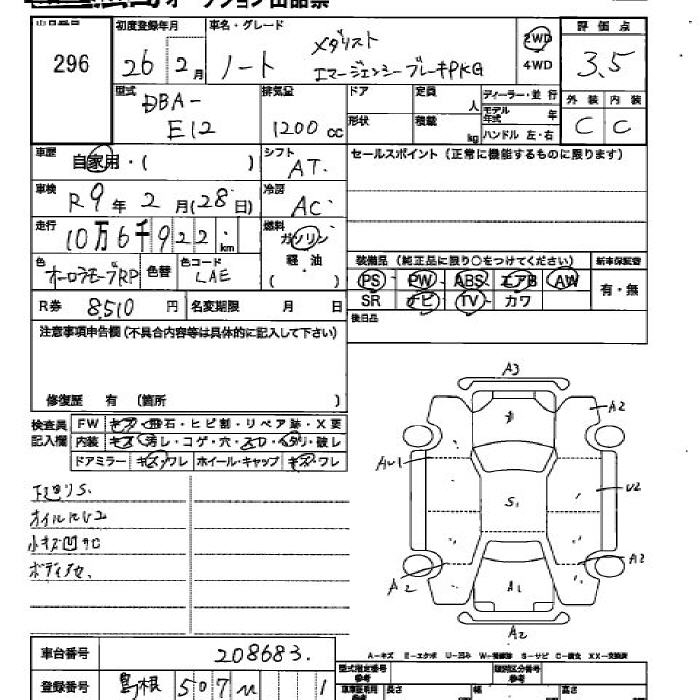 オークション出品票
出品番号 初度登録年月 車名・グレード 評価点
296 26年 2月 ノート メダリスト エマージェンシーブレーキPKG 2WD 4WD 3.5
型式 排気量 ドア 定員 人 ディーラー・並行 外装 内装
DBA-E12 1200cc 形状 積載 kg モデル年式 年 ハンドル 左・右 C C
車歴 自家用・( ) シフト AT. セールスポイント (正常に機能するものに限ります)
車検 R9年 2月(28日) 冷房 AC
走行 10万6千922km 燃料 ガソリン 軽油 ( )
装備品 (純正品に限り○をつけてください) 新車保証書
色 オーロラモーブRP 色替 色コード LAE
PS PW ABS エアB AW 有・無
SR ナビ TV カワ
R券 8,510円 名変期限 月 日 後日品
注意事項申告欄(不具合内容等は具体的に記入して下さい)
修復歴 有 (箇所 )
検査員記入欄 FW キズ・飛石・ヒビ割・リペア跡・X要
内装 キズ・汚レ・コゲ・穴・スレ・ヘタリ・破レ
ドアミラー キズ・ワレ ホイール・キャップ キズ・ワレ
下廻りS.
オイルにじ
小キズ凹有
A3
A2
AU1
U2
S.
A2
A2
A1
A2
A-キズ E-エクボ U-凹み W-補修跡 S-サビ C-腐食 XX-交換済
車台番号 208683.
登録番号 島根 507 1
型式指定番号 参考 類別区分番号 参考
長さ 幅 高さ